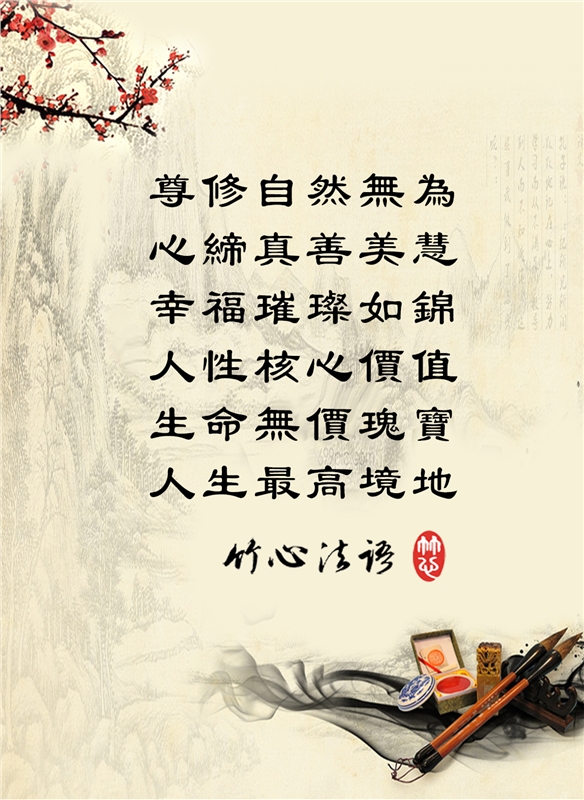 尊修自然無為
心締真善美慧
幸福璀璨如錦
人性核心價值
生命無價瑰寶
人生最高境地
竹心法语
竹心